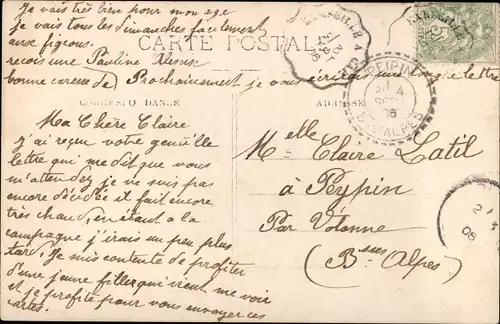 très bien pour mon age
je vais tous les dimanches facilement
aux figons.
recois une Pauline
bonne caresse de Prochainement je vous écrirai une longue lettre
CARTE POSTALE
MARSEILLE A
PEIPIN
Bses ALPES
CORRESPONDANCE
ADRESSE
Ma Chère Claire
j'ai reçu votre gentille
lettre qui me dit que vous
m'attendez je ne suis pas
encore décidée il fait encore
très chaud, en étant a la
campagne j'irais un peu plus
tard, je me contente de profiter
d'une jeune fille qui vient me voir
et je profite pour vous envoyer ces
cartes.
Melle Claire Latil
à Peypin
Par Volonne
(Bses Alpes)
2
06